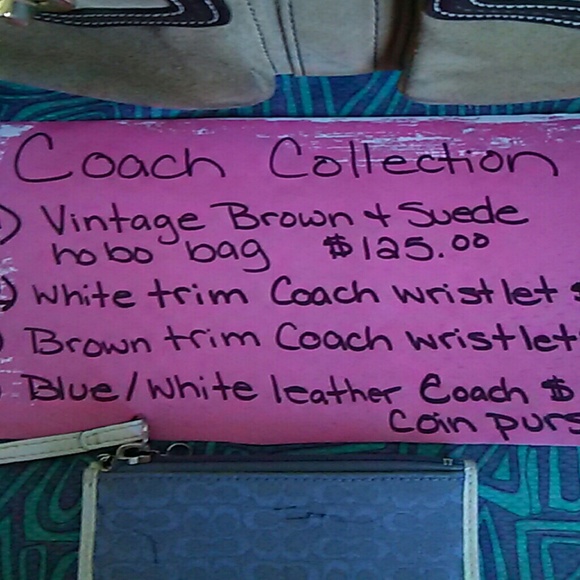 Coach Collection
) Vintage Brown + Suede
hobo bag $125.00
) White trim Coach wristlet $
) Brown trim Coach wristlet
) Blue/White leather Coach $
Coin purs